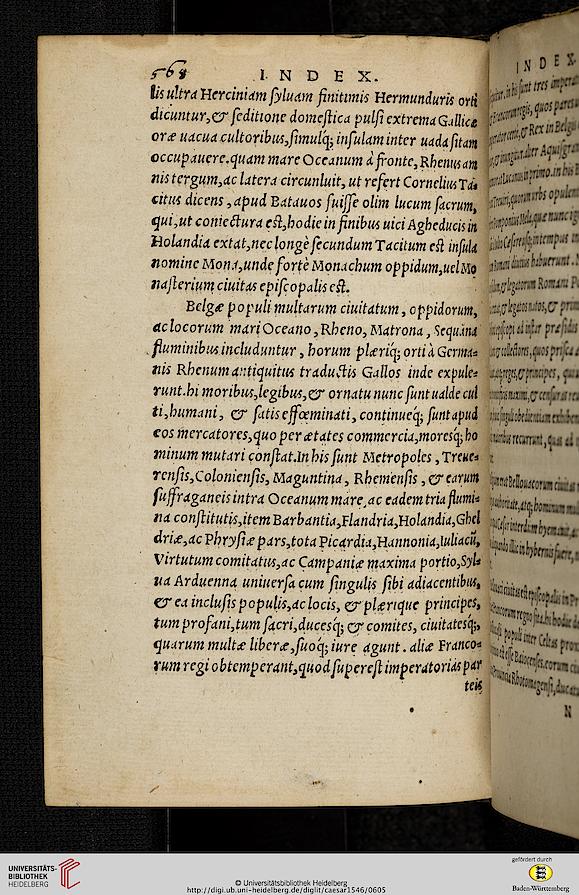 568 I N D E X.
lis ultra Herciniam syluam finitimis Hermunduris orti
dicuntur,& seditione domestica pulsi extrema Gallicæ
oræ uacua cultoribus,simulq; insulam inter uada sitam
occupauere.quam mare Oceanum à fronte, Rhenus am
nis tergum,ac latera circunluit, ut refert Cornelius Ta=
citus dicens , apud Batauos fuisse olim lucum sacrum,
qui,ut coniectura est,hodie in finibus uici Agheducis in
Holandia extat,nec longè secundum Tacitum est insula
nomine Mona,unde fortè Monachum oppidum,uel Mo
nasterium ciuitas episcopalis est.
Belgæ populi multarum ciuitatum , oppidorum,
ac locorum mari Oceano , Rheno, Matrona , Sequana
fluminibus includuntur , horum plæriq; orti à Germa=
nis Rhenum antiquitus traductis Gallos inde expule=
runt.hi moribus,legibus,& ornatu nunc sunt ualde cul
ti,humani, & satis effœminati, continueq; sunt apud
eos mercatores,quo per ætates commercia,moresq; ho
minum mutari constat.In his sunt Metropoles , Treue=
rensis,Coloniensis, Maguntina , Rhemensis , & earum
suffraganeis intra Oceanum mare,ac eadem tria flumi=
na constitutis,item Barbantia,Flandria,Holandia,Ghel
driæ,ac Phrysiæ pars,tota Picardia,Hannonia,Iuliacũ,
Virtutum comitatus,ac Campaniæ maxima portio,Syl=
ua Arduenna uniuersa cum singulis sibi adiacentibus,
& ea inclusis populis,ac locis, & plærique principes,
tum profani,tum sacri,ducesq; & comites, ciuitatesq;,
quarum multæ liberæ,suoq; iure agunt . aliæ Franco=
rum regi obtemperant,quod superest imperatorias par
teis
I N D E X.
N
UNIVERSITÄTS-
BIBLIOTHEK
HEIDELBERG
© Universitätsbibliothek Heidelberg
http://digi.ub.uni-heidelberg.de/diglit/caesar1546/0605
gefördert durch
Baden-Württemberg